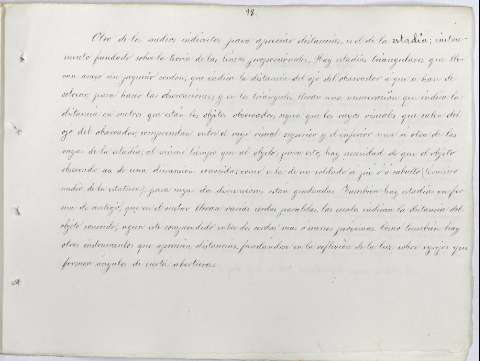 18.
Otro de los medios indirectos para apreciar distancias, es el de la estadia; instru-
mento fundado sobre la teoria de las lineas proporcionales. Hay estadias triangulares que lle-
van anexo un pequeño cordon, que indica la distancia del ojo del observador a que se han de
colocar para hacer las observaciones, y en los triángulos llevan una numeracion que indica la
distancia en metros que están los objetos observados, segun que los rayos visuales que salen del
ojo del observador, comprendan entre el rayo visual superior y el inferior una u otra de las
rayas de la estadia, al mismo tiempo que al objeto; para esto, hay necesidad de que el objeto
observado sea de una dimension conocida, como es la de un soldado a pié ó a caballo (termino
medio de la estatura), para cuyas dos dimensiones estan graduadas. Tambien hay estadias en for-
ma de anteojo, que en el ocular llevan varias cerdas paralelas, las cuales indican la distancia del
objeto conocido, segun esté comprendido entre dos cerdas mas o menos proximas. Como tambien hay
otros instrumentos que aprecian distancias, fundandose en la reflexion de la luz sobre espejos que
forman ángulos de cierta abertura.